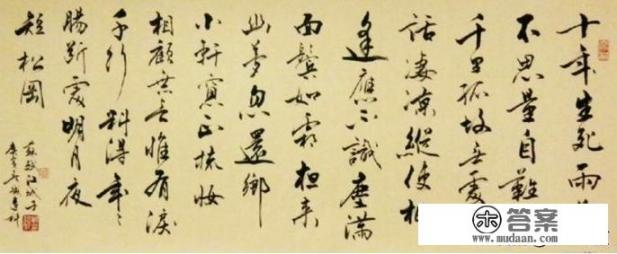 十年生死兩
不思量自難
千里孤墳无處
話淒涼縱使相
逢應不識塵滿
面鬢如霜夜来
幽夢忽還鄉
小軒窗正梳妝
相顧无言惟有淚
千行料得年々
腸斷處明月夜
短松岡
蘇軾江城子
答案
www.mudaan.com